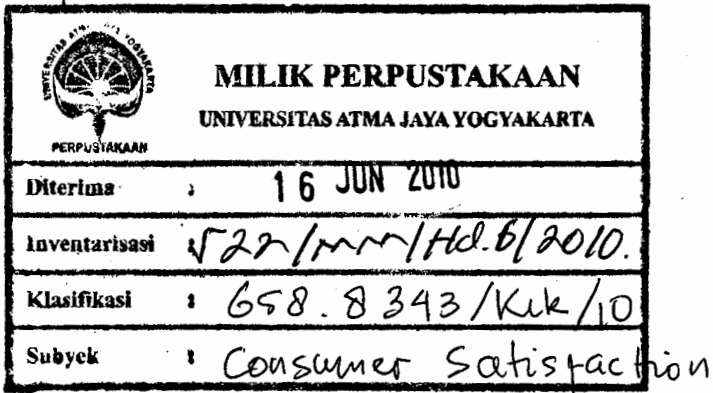 UNIVERSITAS ATMA JAYA YOGYAKARTA
PERPUSTAKAAN
MILIK PERPUSTAKAAN
UNIVERSITAS ATMA JAYA YOGYAKARTA
Diterima : 16 JUN 2010
Inventarisasi : 522/MM/Hd.6/2010.
Klasifikasi : 658.8343/Kik/10
Subyek : Consumer Satisfaction